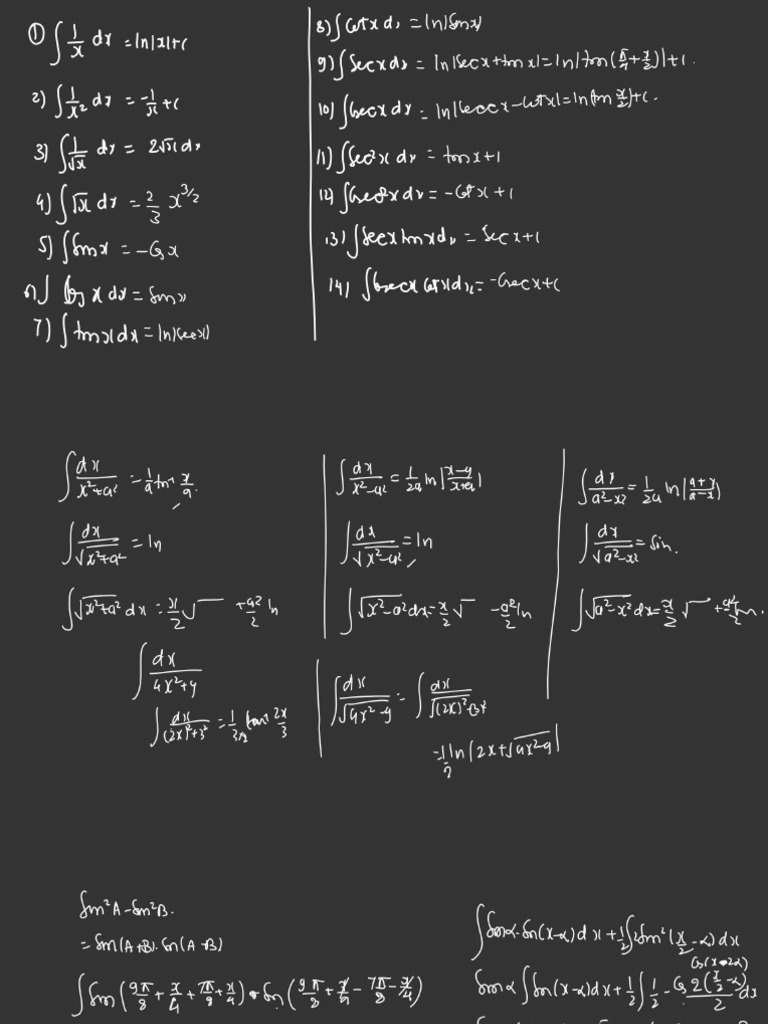 ① ∫ 1/x dx = ln|x|+c
2) ∫ 1/x² dx = -1/x +c
3) ∫ 1/√x dx = 2√x dx
4) ∫ √x dx = 2/3 x^3/2
5) ∫ Sinx = -Cosx
∫ Cos x dx = Sinx
7) ∫ tanx dx = ln|secx|
8) ∫ Cotx dx = ln|Sinx|
9) ∫ Secx dx = ln|Secx + tanx| = ln|tan(π/4 + x/2)| + c.
10) ∫ Cosecx dx = ln|Cosecx - Cotx| = ln|tan x/2| + c.
11) ∫ Sec²x dx = tanx + c
12) ∫ Cosec²x dx = -Cotx + c
13) ∫ Secx tanx dx = Secx + c
14) ∫ Cosecx Cotx dx = -Cosecx + c
∫ dx/(x²+a²) = 1/a tan⁻ x/a.
∫ dx/√(x²+a²) = ln
∫ √(x²+a²) dx = x/2 √ + a²/2 ln
∫ dx/(x²-a²) = 1/2a ln|(x-a)/(x+a)|
∫ dx/√(x²-a²) = ln
∫ √(x²-a²) dx = x/2 √ - a²/2 ln
∫ dx/(a²-x²) = 1/2a ln|(a+x)/(a-x)|
∫ dx/√(a²-x²) = Sin.
∫ √(a²-x²) dx = x/2 √ + a²/2 Sin.
∫ dx/(4x²+9)
∫ dx/((2x)²+3²) = 1/3·2 tan⁻ 2x/3
∫ dx/√(4x²-9) = ∫ dx/√((2x)²-3²)
= 1/2 ln|2x+√(4x²-9)|
Sin²A - Sin²B.
= Sin(A+B). Sin(A-B)
∫ Sin(9π/8 + x/4 + 7π/8 + x/4) • Sin(9π/8 + x/4 - 7π/8 - x/4)
∫ Sinα. Sin(x-α) dx + 1/2 ∫ 2Sin²(x/2 - α) dx
Cos(x-2α)
Sinα ∫ Sin(x-α) dx + 1/2 ∫ 1/2 - Cos 2(x/2 - α)/2 dx